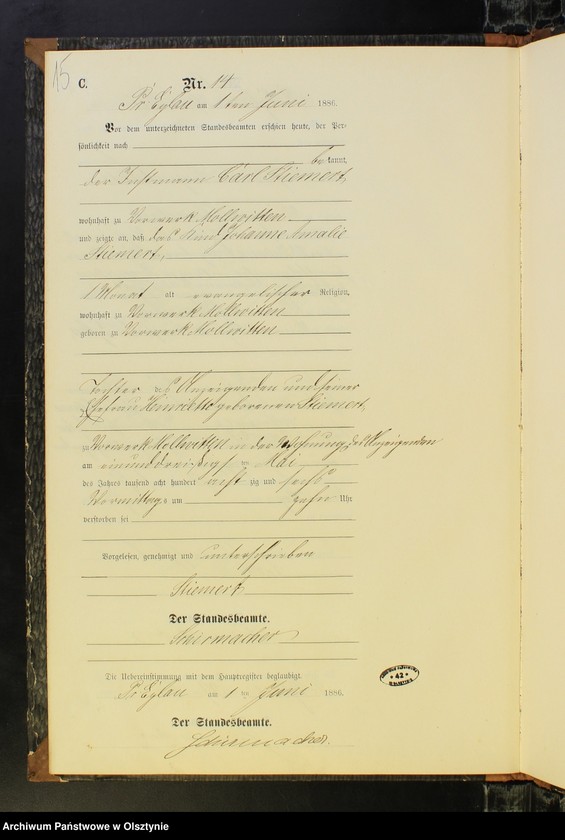 15
C.
Nr. 14
Pr. Eylau am 1ten Juni 1886.
Vor dem unterzeichneten Standesbeamten erschien heute, der Per-
sönlichkeit nach
be kannt,
der Instmann Carl Stiemert,
wohnhaft zu Vorwerk Mollwitten
und zeigte an, daß das Kind Johanne Amalie
Stiemert,
1 Monat alt evangelischer Religion,
wohnhaft zu Vorwerk Mollwitten
geboren zu Vorwerk Mollwitten
Tochter des Anzeigenden und seiner
Ehefrau Henriette geborenen Stiemert,
zu Vorwerk Mollwitten in der Wohnung des Anzeigenden
am einunddreißigsten Mai
des Jahres tausend acht hundert acht zig und sechs
Vormittags um zehn Uhr
verstorben sei
Vorgelesen, genehmigt und unterschrieben
Stiemert
Der Standesbeamte.
Schirmacher
Die Uebereinstimmung mit dem Hauptregister beglaubigt.
Pr. Eylau am 1 ten Juni 1886.
Der Standesbeamte.
Schirmacher.
* 42 *
Archiwum Państwowe w Olsztynie